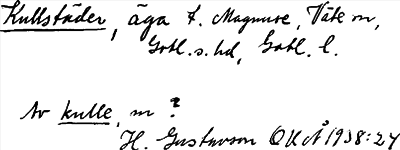 Kullstäder, äga f. Magnuse, Väte sn,
Gotl. s. hd, Gotl. l.
Av kulle, m ?
H. Gustavson OUÅ 1938:24